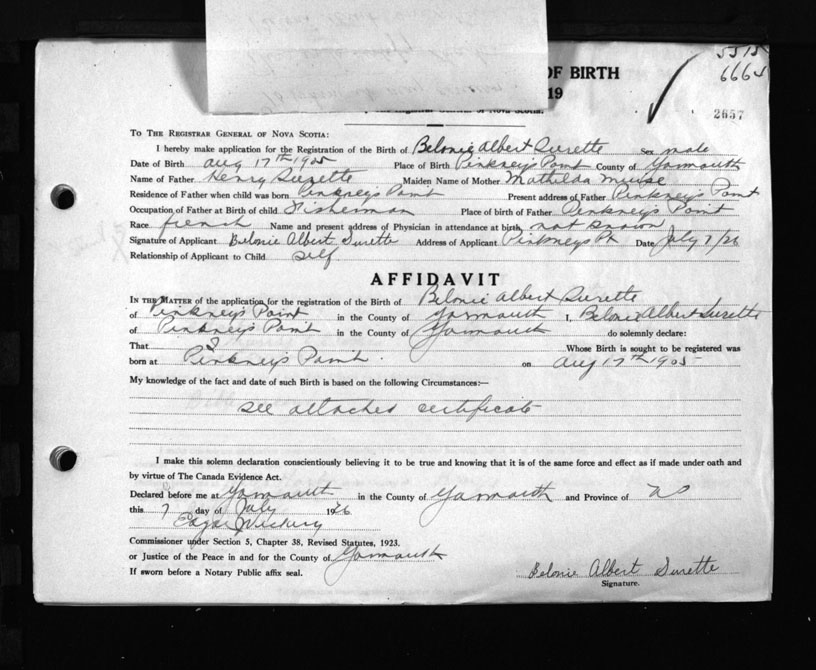 5515
OF BIRTH
6664
19
2657
TO THE REGISTRAR GENERAL OF NOVA SCOTIA:
I hereby make application for the Registration of the Birth of Belonie Albert Surette Sex male
Date of Birth Aug 17th 1905 Place of Birth Pinkney's Point County of Yarmouth
Name of Father Henry Surette Maiden Name of Mother Mathilda Muise
Residence of Father when child was born Pinkney's Point Present address of Father Pinkney's Point
Occupation of Father at Birth of child Fisherman Place of birth of Father Pinkney's Point
Race french Name and present address of Physician in attendance at birth, not known
Signature of Applicant Belonie Albert Surette Address of Applicant Pinkneys Pt Date July 7/26
Relationship of Applicant to Child self
AFFIDAVIT
IN THE MATTER of the application for the registration of the Birth of Belonie Albert Surette
of Pinkney's Point in the County of Yarmouth I, Belonie Albert Surette
of Pinkney's Point in the County of Yarmouth do solemnly declare:
That I Whose Birth is sought to be registered was
born at Pinkney's Point. on Aug 17th 1905
My knowledge of the fact and date of such Birth is based on the following Circumstances:—
see attached certificate
I make this solemn declaration conscientiously believing it to be true and knowing that it is of the same force and effect as if made under oath and
by virtue of The Canada Evidence Act.
Declared before me at Yarmouth in the County of Yarmouth and Province of NS
this 7 day of July 1926
Commissioner under Section 5, Chapter 38, Revised Statutes, 1923.
or Justice of the Peace in and for the County of Yarmouth
If sworn before a Notary Public affix seal.
Belonie Albert Surette
Signature.